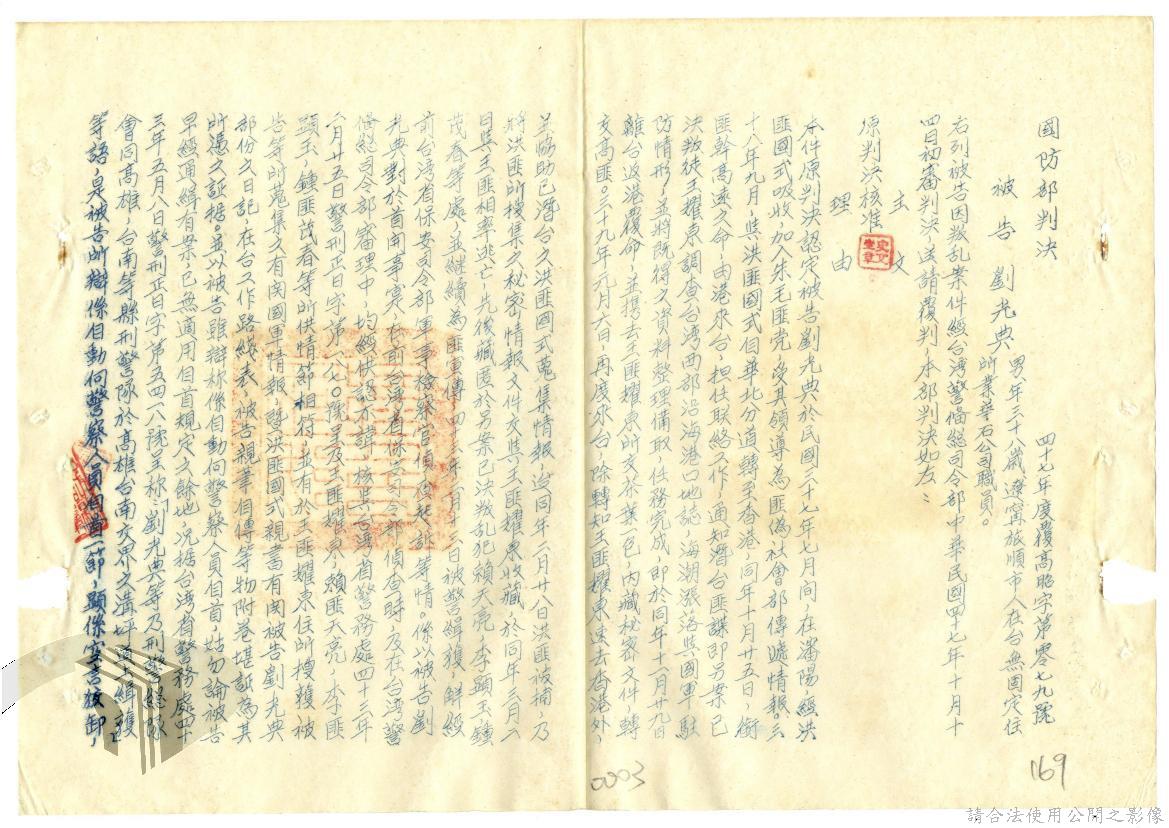 國防部判決
四十七年度覆高昭字第零七九號
被告 劉光典 男年三十八歲遼寧旅順市人在台無固定住
所業華石公司職員。
右列被告因叛乱案件經台灣警備總司令部中華民國四十七年十月十
四日初審判決，送請覆判，本部判決如左：
主文
原判決核准
理由
本件原判決認定被告劉光典於民國三十七年七月間，在瀋陽，經洪
匪國式吸收，加入朱毛匪党，受其領導為匪偽社會部傳遞情報。三
十八年九月，與洪匪國式自華北分道轉至香港，同年十月廿五日，銜
匪幹高遠之命，由港來台，担任联絡工作，通知潛台匪諜即另案已
決叛徒王耀東調查台湾西部沿海港口地誌，海潮漲落與國軍駐
防情形，並將既得之資料整理備取，任務完成即於同年十一月廿九日
離台返港覆命，並携去王匪耀東所交茶葉一包，內藏秘密文件，轉
交高匪。三十九年元月六日，再度來台，除轉知王匪耀東速去香港外，
並協助已潛台之洪匪國式蒐集情報，迨同年二月廿八日洪匪被捕，乃
將洪匪所搜集之秘密情報文件交與王匪耀東收藏，於同年三月六
日與王匪相率逃亡，先後藏匿於另案已決叛乱犯賴天亮，李顯玉，鍾
茂春等處，並繼續為匪宣傳，四十三年 月 日被警緝獲，解經
前台湾省保安司令部軍事檢察官偵查起訴等情。係以被告劉
光典對於首開事實，於前台湾省保安司令部偵查時，及在台湾警
備總司令部審理中，均經供認不諱，核與台灣省警務處四十三年
六月廿五日警刑正日字第 八 號呈及王匪耀東，賴匪天亮，李匪
顯玉，鍾匪茂春等所供情節相符，並有於王匪耀東住所搜獲被
告等所蒐集之有関國軍情報，暨洪匪國式親書有関被告劉光典
部份之日記，在台工作路綫表，被告親筆自傳等物附卷堪証為其
所憑之証據。並以被告雖辯称係自動向警察人員自首，姑勿論被告
早經通緝有案，已無適用自首規定之餘地，况据台湾省警務處四十
三年五月八日警刑正日字第五四一六號呈称：「劉光典等乃刑警總隊
會同高雄，台南等縣刑警隊於高雄台南交界之溝坪 緝獲」
等語，是被告所辯係自動向警察人員自首一節，顯係空言狡卸，
0003
169
請合法使用公開之影像